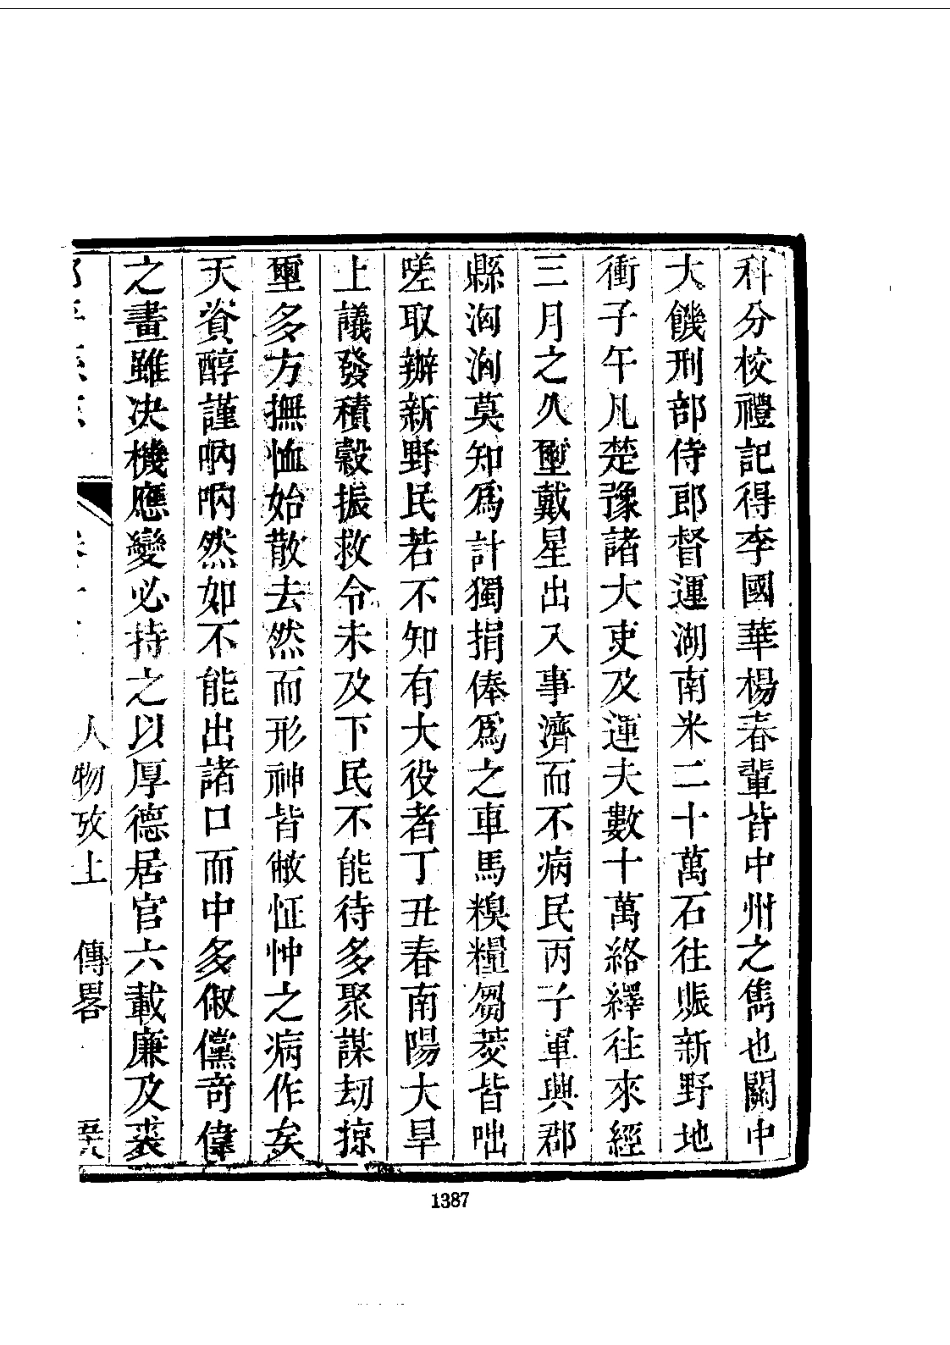 科分校禮記得李國華楊春輩皆中州之雋也關中
大饑刑部侍郎督運湖南米二十萬石往賑新野地
衝子午凡楚豫諸大吏及運夫數十萬絡繹往來經
三月之久壐戴星出入事濟而不病民丙子軍興郡
縣洶洶莫知爲計獨捐俸爲之車馬糗糧芻茭皆咄
嗟取辦新野民若不知有大役者丁丑春南陽大旱
上議發積穀振救令未及下民不能待多聚謀刧掠
壐多方撫恤始散去然而形神皆敝怔忡之病作矣
天資醇謹吶吶然如不能出諸口而中多俶儻奇偉
之畫雖决機應變必持之以厚德居官六載廉及裘
人物攷上 傳畧
1387